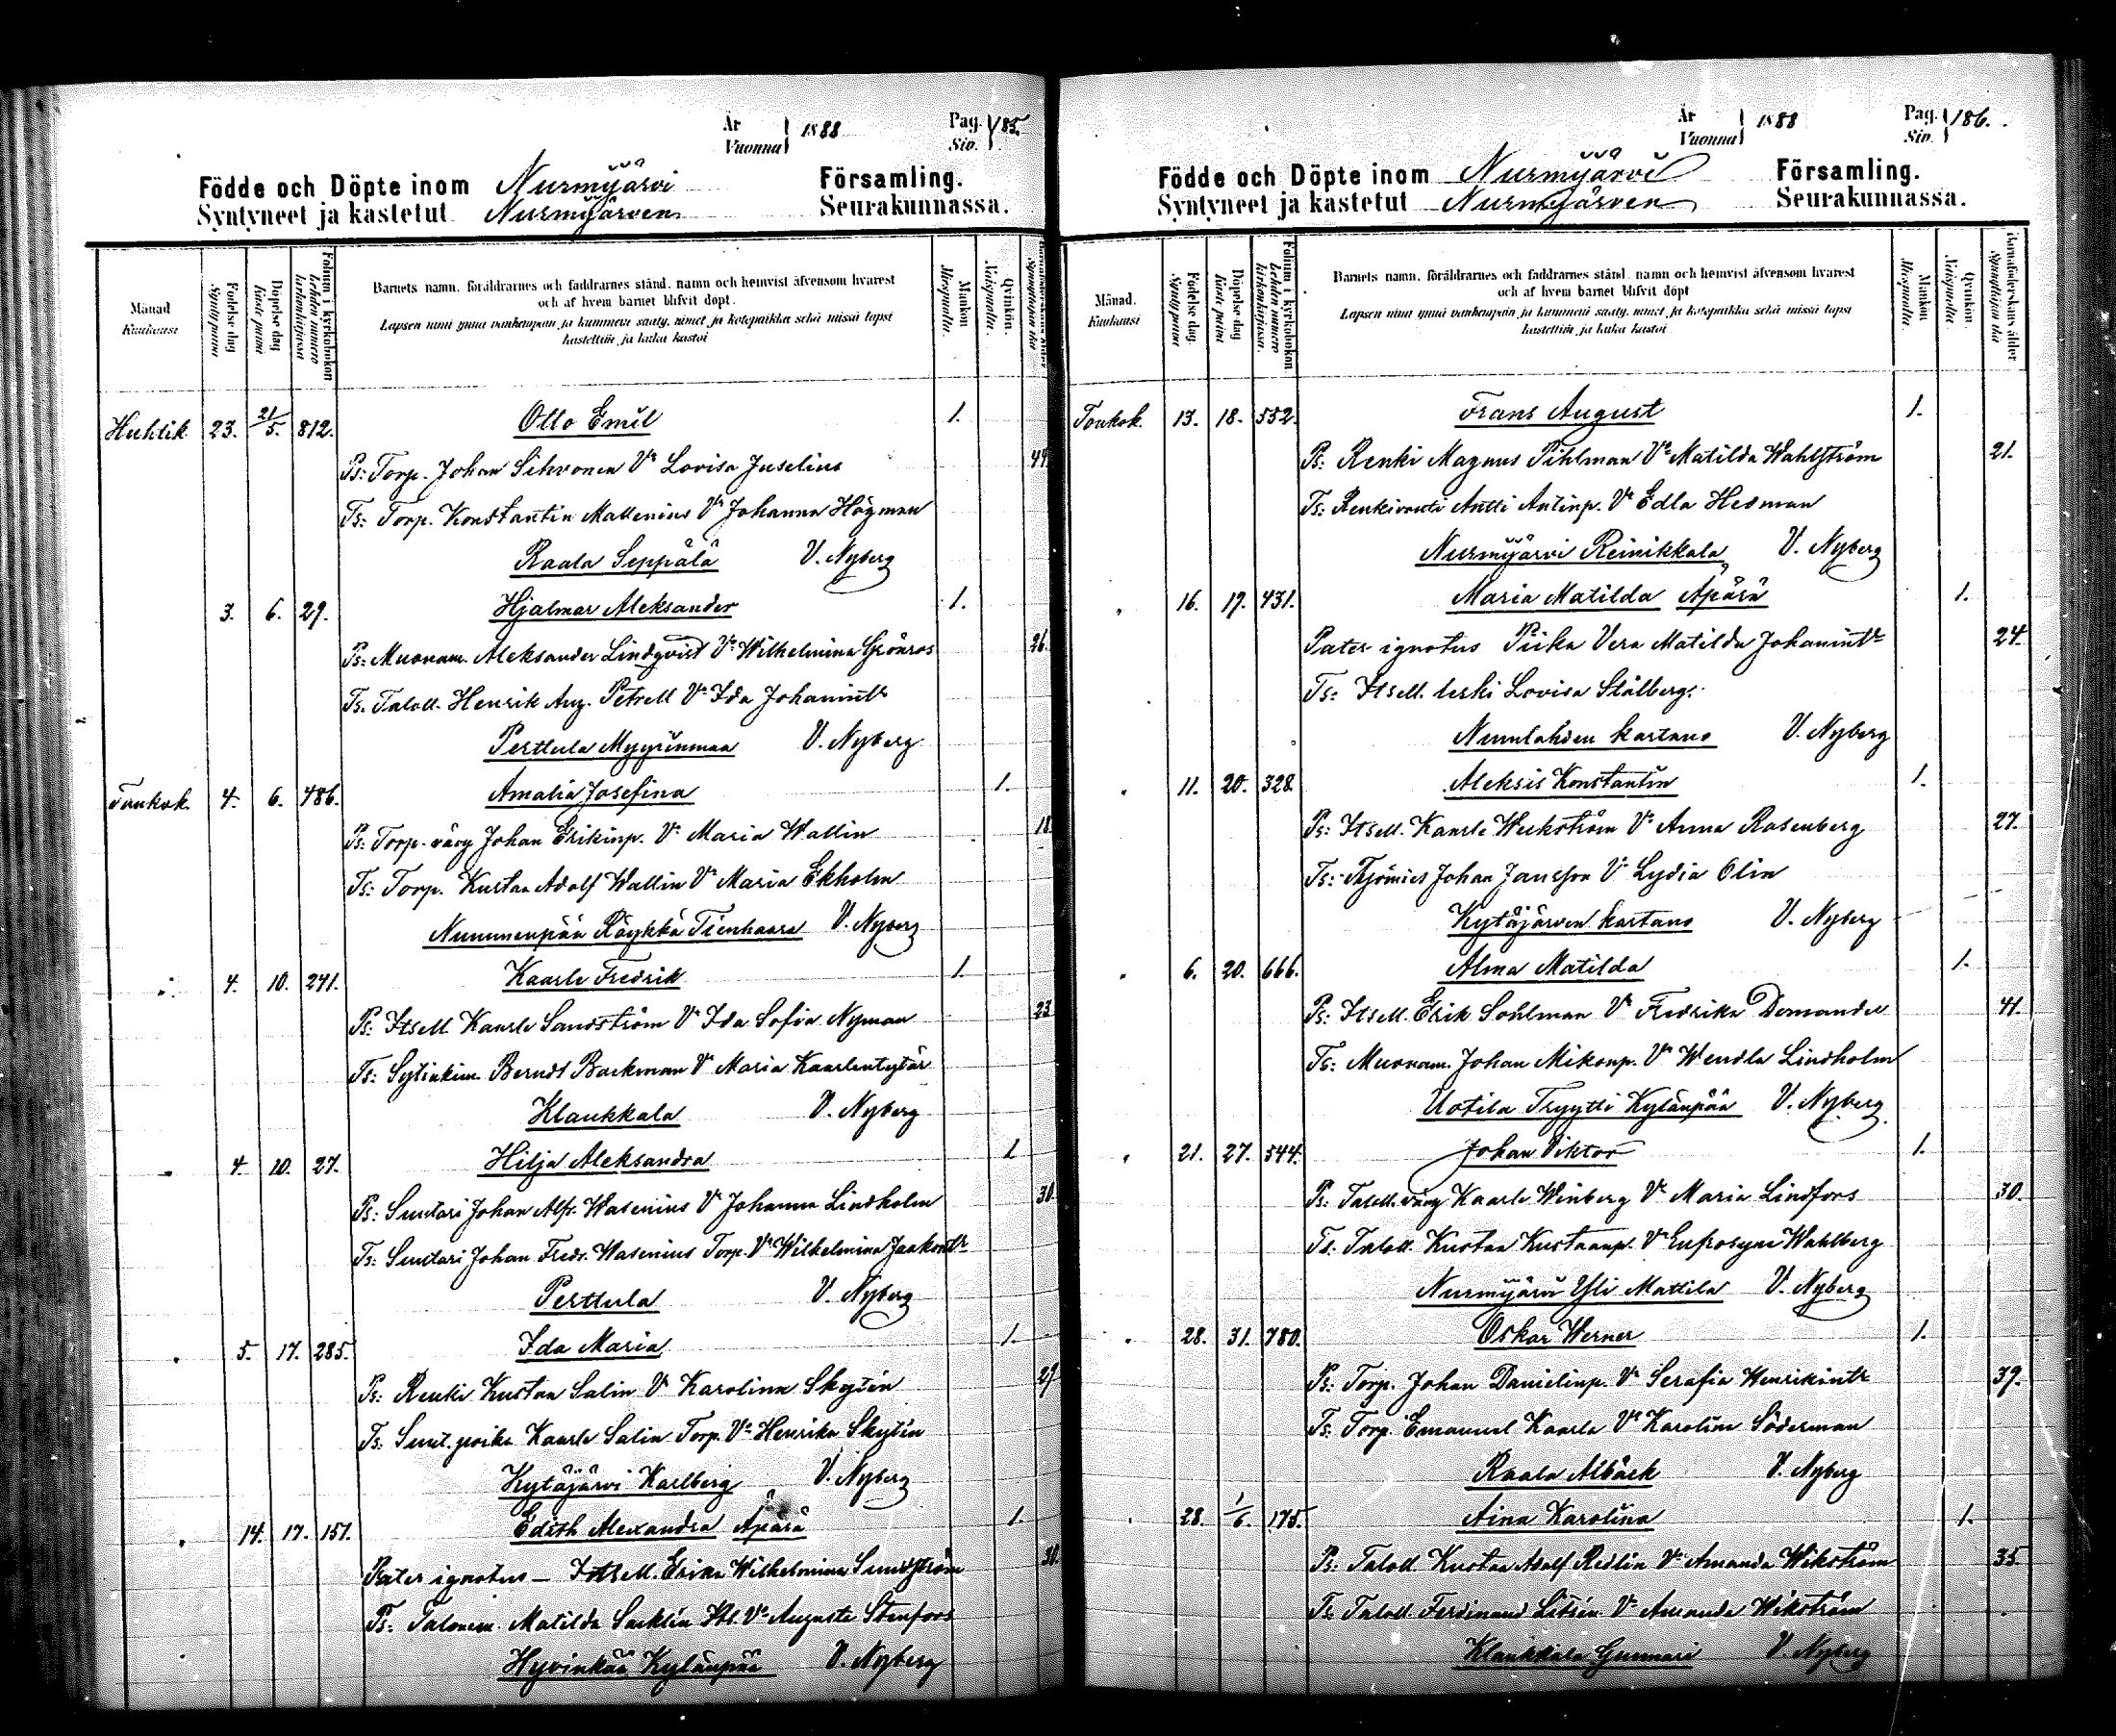 År
Vuonna
1888
Pag.
Siv.
185.
Födde och Döpte inom Nurmijärvi Församling.
Syntyneet ja kastetut Nurmijärven Seurakunnassa.
Månad
Kuukausi
Födelse dag
Synty päivä
Döpelse dag
Kaste päivä
Folium i kyrkoboken
Lehden numero kirkonkirjassa
Barnets namn, föräldrarnes och faddrarnes stånd, namn och hemvist äfvensom hvarest
och af hvem barnet blifvit döpt.
Lapsen nimi ynnä vanhempain ja kummein sääty, nimet ja kotopaikka sekä missä lapsi
kastettiin ja kuka kastoi
Mankön
Miespuolta.
Qvinkön.
Naispuolta.
Huhtik. 23. 21/5. 812. Otto Emil 1.
Ps: Torp. Johan Sihvonen Vo Lovisa Juselius 44
Ts: Torp. Konstantin Mattenius Vo Johanna Högman
Raala Seppälä V. Nyberg
3. 6. 29. Hjalmar Aleksander 1.
Ps: Muonam. Aleksander Lindqvist Vo Wilhelmina Grönroos 26.
Ts. Taloll. Henrik Aug. Petrell Vo Ida Johanintr
Perttula Myyrinmaa V. Nyberg
Toukok. 4. 6. 486. Amalia Josefina 1.
Ps: Torp. vävy Johan Erikinp. Vo Maria Wallin 18.
Ts: Torp. Kustaa Adolf Wallin Vo Maria Ekholm
Nummenpää Röykkä Tienhaara V. Nyberg
" 4. 10. 241. Kaarle Fredrik 1.
Ps: Itsell. Kaarle Sandström Vo Ida Sofia Nyman 23
Ts: Sytinkim. Berndt Backman Vo Maria Kaarlentytär
Klaukkala V. Nyberg
" 4. 10. 27. Hilja Aleksandra 1
Ps: Suutari Johan Alfr. Wasenius Vo Johanna Lindholm 30.
Ts: Suutari Johan Fredr. Wasenius Torp. Vo Wilhelmina Jaakontr
Perttula V. Nyberg
" 5. 17. 285. Ida Maria 1.
Ps: Renki Kustaa Salin Vo Karolina Skytén 29
Ts: Suut. poika Kaarle Salin Torp. Vo Henrika Skytén
Kytäjärvi Karlberg V. Nyberg
" 14. 17. 151. Edith Alexandra Äpärä 1.
Pater ignotus – Itsell. Erika Wilhelmina Sundström 30.
Ts: Talonem. Matilda Sacklin Itl. Vo Augusta Stenfors
Hyvinkää Kylänpää V. Nyberg
År
Vuonna
1888
Pag.
Siv.
186.
Födde och Döpte inom Nurmijärvi Församling.
Syntyneet ja kastetut Nurmijärven Seurakunnassa.
Månad.
Kuukausi
Födelse dag.
Synty päivä
Döpelse dag
Kaste päivä
Folium i kyrkoboken
Lehden numero kirkonkirjassa.
Barnets namn, föräldrarnes och faddrarnes stånd, namn och hemvist äfvensom hvarest
och af hvem barnet blifvit döpt
Lapsen nimi ynnä vanhempain ja kummein sääty, nimet ja kotopaikka sekä missä lapsi
kastettiin ja kuka kastoi
Mankön
Miespuolta.
Qvinkön.
Naispuolta
Barnaföderskans ålder
Synnyttäjän ikä
Toukok. 13. 18. 552. Frans August 1.
Ps: Renki Magnus Pihlman Vo Matilda Wahlström 21.
Ts: Renkivouti Antti Antinp. Vo Edla Hedman
Nurmijärvi Reinikkala V. Nyberg
" 16. 19. 431. Maria Matilda Äpärä 1.
Pater ignotus Piika Vera Matilda Johanintr 24.
Ts: Itsell. leski Lovisa Stålberg.
Numlahden kartano V. Nyberg
" 11. 20. 328. Aleksis Konstantin 1.
Ps: Itsell. Kaarle Weckström Vo Anna Rosenberg 27.
Ts: Työmies Johan Jansson Vo Lydia Olin
Kytäjärven kartano V. Nyberg
" 6. 20. 666. Alma Matilda 1.
Ps: Itsell. Erik Sohlman Vo Fredrika Demander 41.
Ts: Muonam. Johan Mikonp. Vo Wendla Lindholm
Uotila Tryytti Kylänpää V. Nyberg
" 21. 27. 544. Johan Viktor 1.
Ps: Taloll. vävy Kaarle Winberg Vo Maria Lindfors 30.
Ts. Taloll. Kustaa Kustaanp. Vo Eufrosyne Wahlberg
Nurmijärvi Yli Mattila V. Nyberg
" 28. 31. 780. Oskar Werner 1.
Ps: Torp. Johan Danielinp. Vo Serafia Henrikintr 39.
Ts: Torp. Emanuel Kaarla Vo Karolina Söderman
Raala Albäck V. Nyberg
" 28. 1/6. 175. Aina Karolina 1.
Ps: Taloll. Kustaa Adolf Redlin Vo Amanda Wikström 35.
Ts: Taloll. Ferdinand Litsén Vo Amanda Wikström
Klaukkala Gunnari V. Nyberg